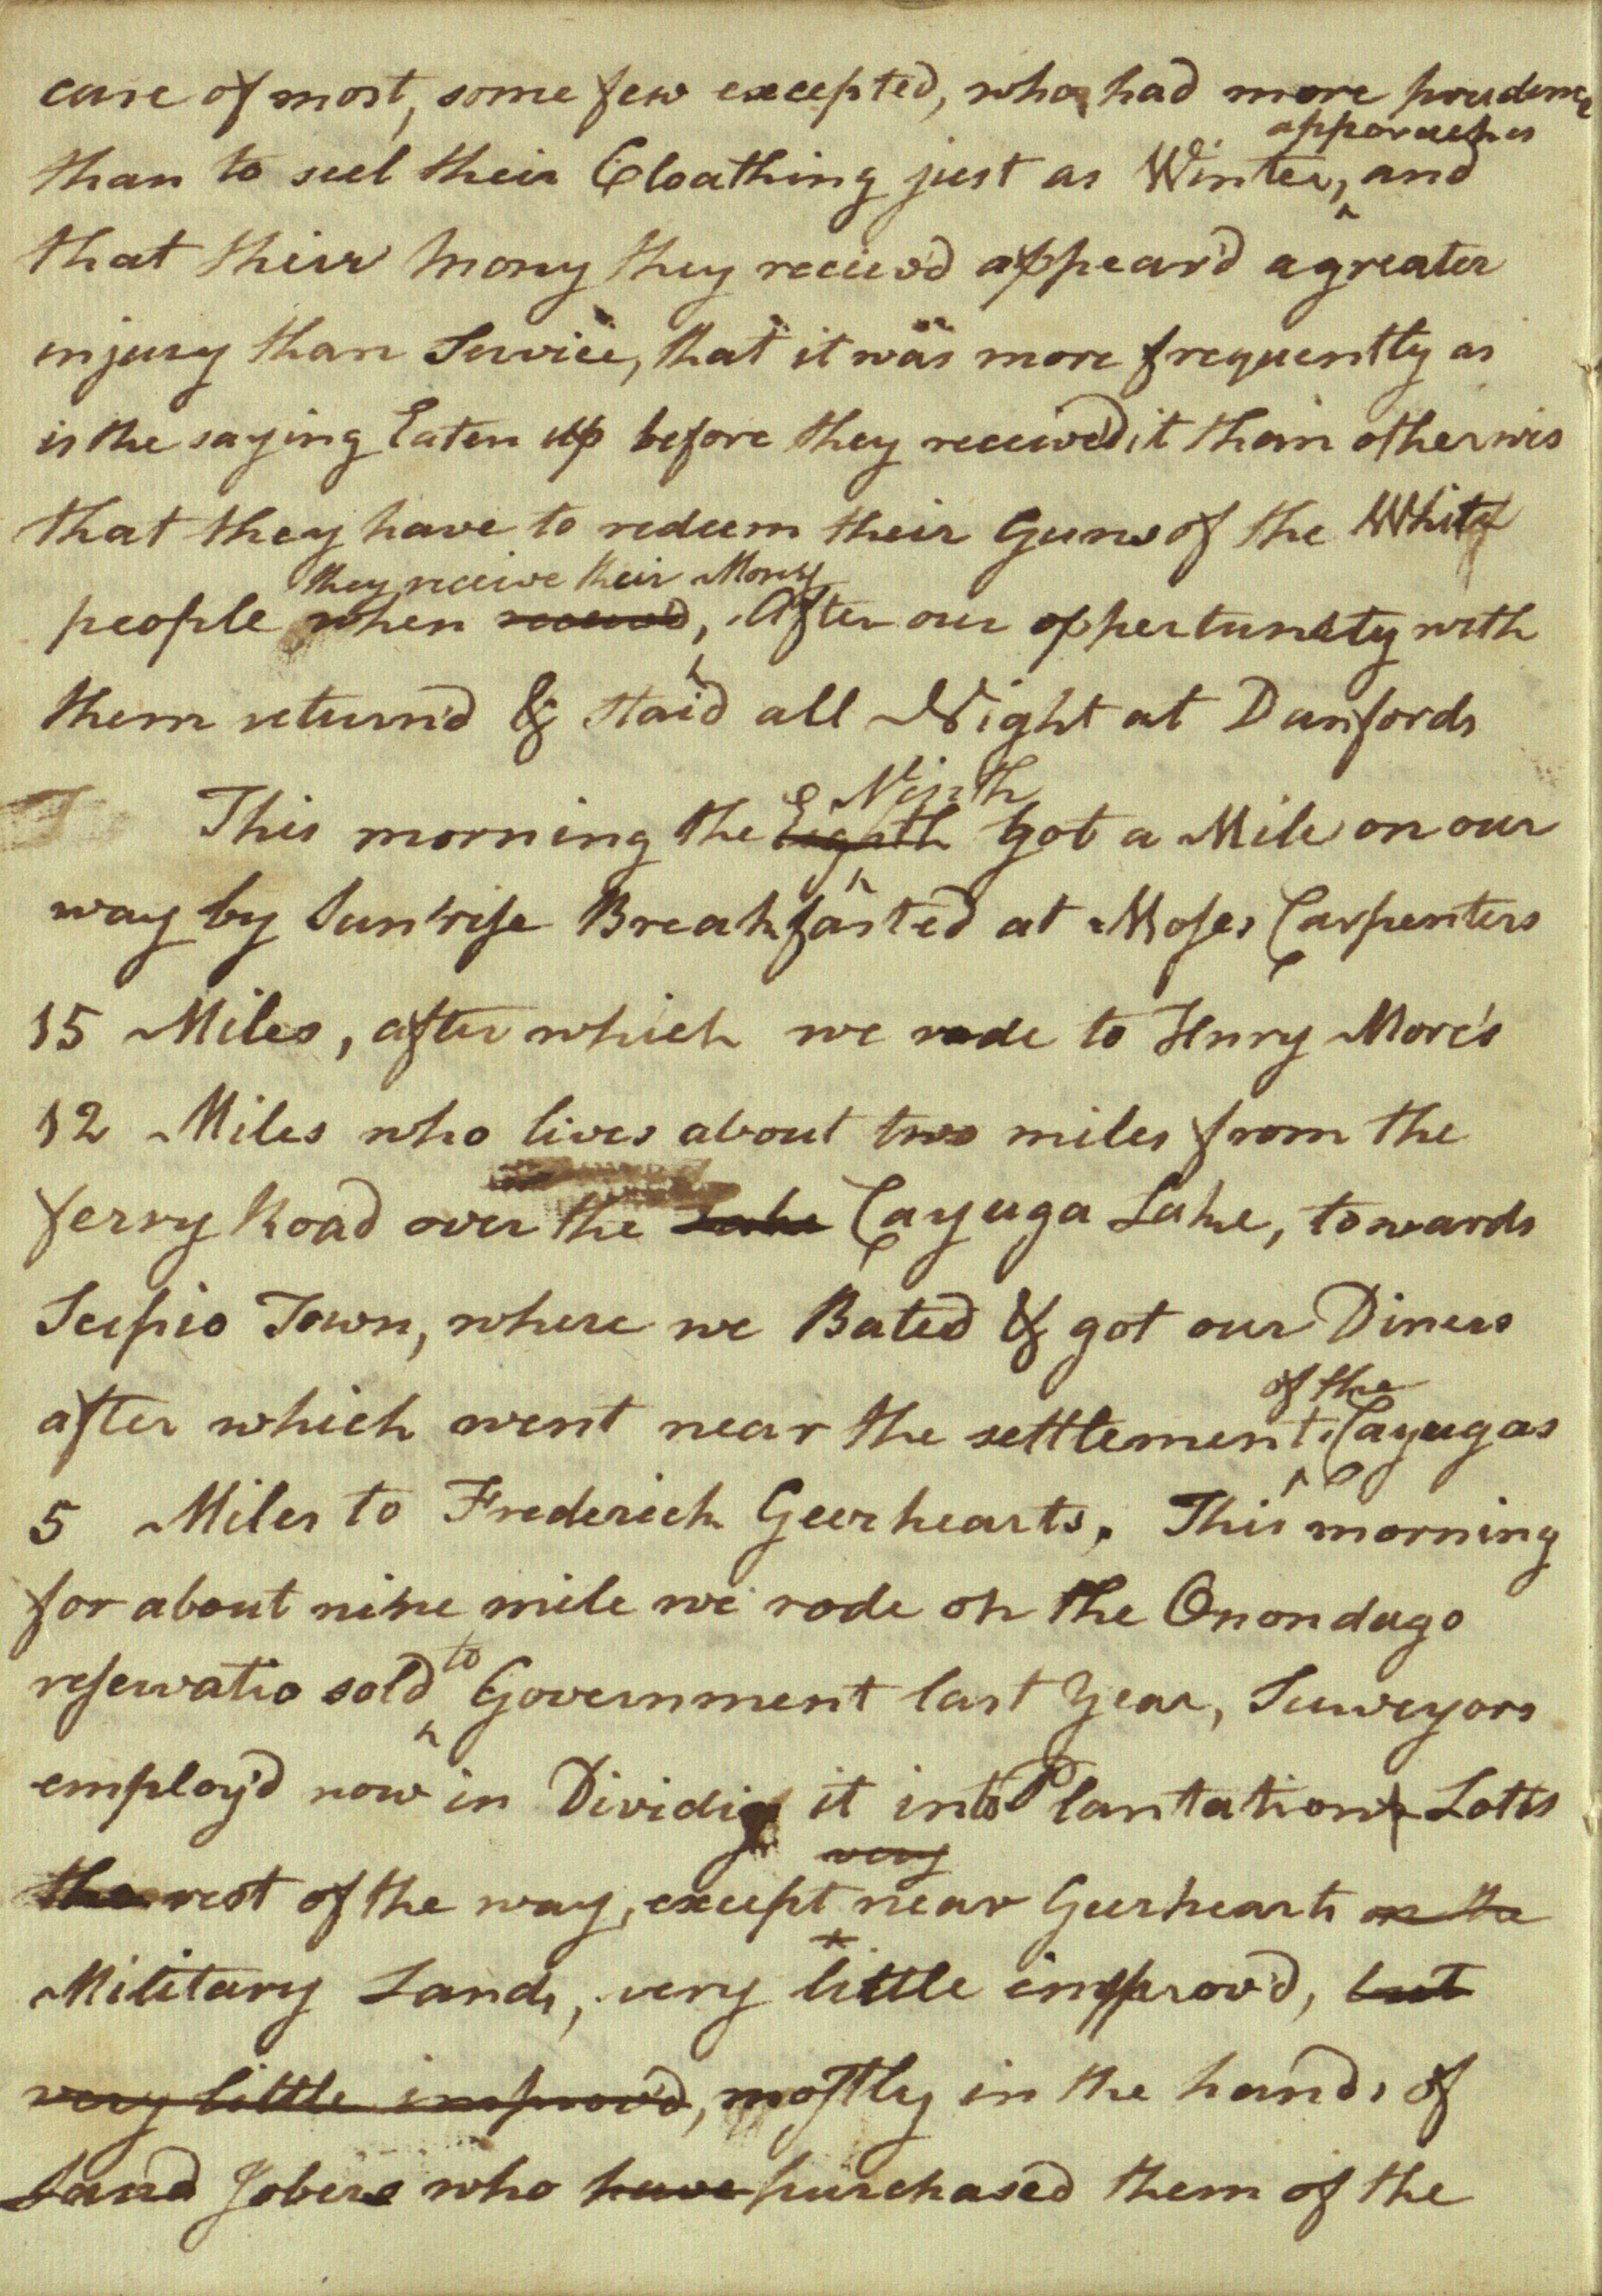 case of most, some few excepted, who had more prudence
than to seel their Cloathing just as Winter, approaches and
that their Mony they reciev'd appear'd a greater
injury than Service, that it was more frequently as
is the saying Eaten up before they received it than otherwis
that they have to redeem their Guns of the White
people when they receive their Mony received, After our oppertunity with
them return'd & staid all Night at Danfords
This morning the Eighth Ninth Got a Mile on our
way by Sun'rise Breakfasted at Moses Carpenters
15 Miles, after which we rode to Hnry More's
12 Miles who lives about two miles from the
ferry Road over the Lake Cayuga Lake, towards
Scipio Town, where we Bated & got our Diners
after which went near the settlement of the Cayugas
5 Miles to Frederick Geerhearts. This morning
for about nine mile we rode on the Onondago
reservatio sold to Government last Year, Surveyors
employ'd now in Dividig it into Plantation Lotts
the rest of the way, except very near Geerhearts on the
Military Lands, very little improov'd, but
very little improov'd, mostly in the hands of
Land Jobers who have purchased them of the